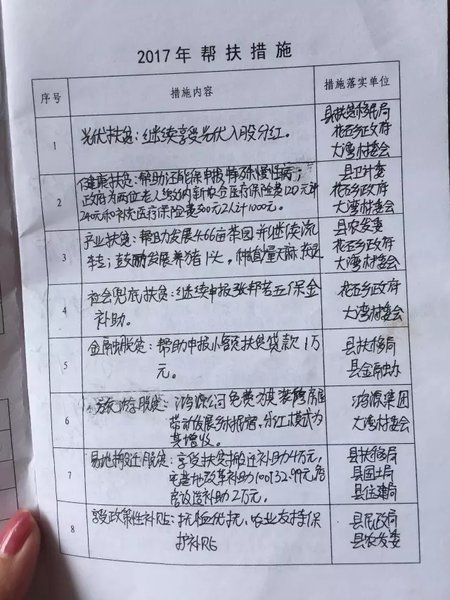 2017年帮扶措施
序号 措施内容 措施落实单位
1 光伏扶贫：继续享受光伏入股分红。 县扶贫移民局
花石乡政府
大湾村委会
2 健康扶贫：帮助汪能保申报特殊慢性病；
政府为两位老人缴纳新农合医疗保险费120元计
240元和补充医疗保险费500元2人计1000元。
县卫计委
花石乡政府
大湾村委会
3 产业扶贫：帮助发展4.66亩茶园并继续流
转；鼓励发展养猪1头，种植
县农发委
花石乡政府
大湾村委会
4 社会兜底扶贫：继续申报张邦考五保金
补助。
花石乡政府
大湾村委会
5 金融脱贫：帮助申报小额扶贫贷款1万
元。
县扶移局
县金融办
6 旅游脱贫：公司免费为其装房屋
带动发展乡村民宿，分红模式为
其增收。
集团
大湾村委会
7 易地搬迁脱贫：享受扶贫搬迁补助4万元，
宅基地改革补助100732.99元，危
房改造补助2万元。
县扶移局
县国土局
县住建局
8 享受政策性补贴：抚恤优抚，农业支持保
护补贴
县民政局
县农发委